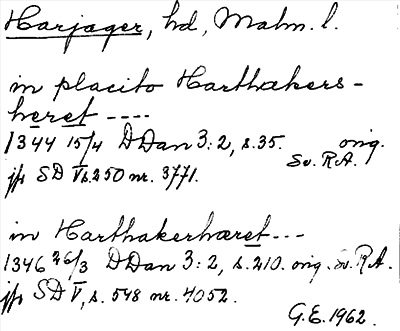 Harjager, hd, Malm. l.
in placito Harthækers-
heret ----
1344 15/4 DDan 3:2, s.35. orig.
Sv. R.A.
jfr SD V s.250 nr. 3771.
in Harthakerhæret ---
1346 26/3 DDan 3:2, s.210. orig. Sv. R.A.
jfr SD V, s. 548 nr. 4052.
G.E. 1962.